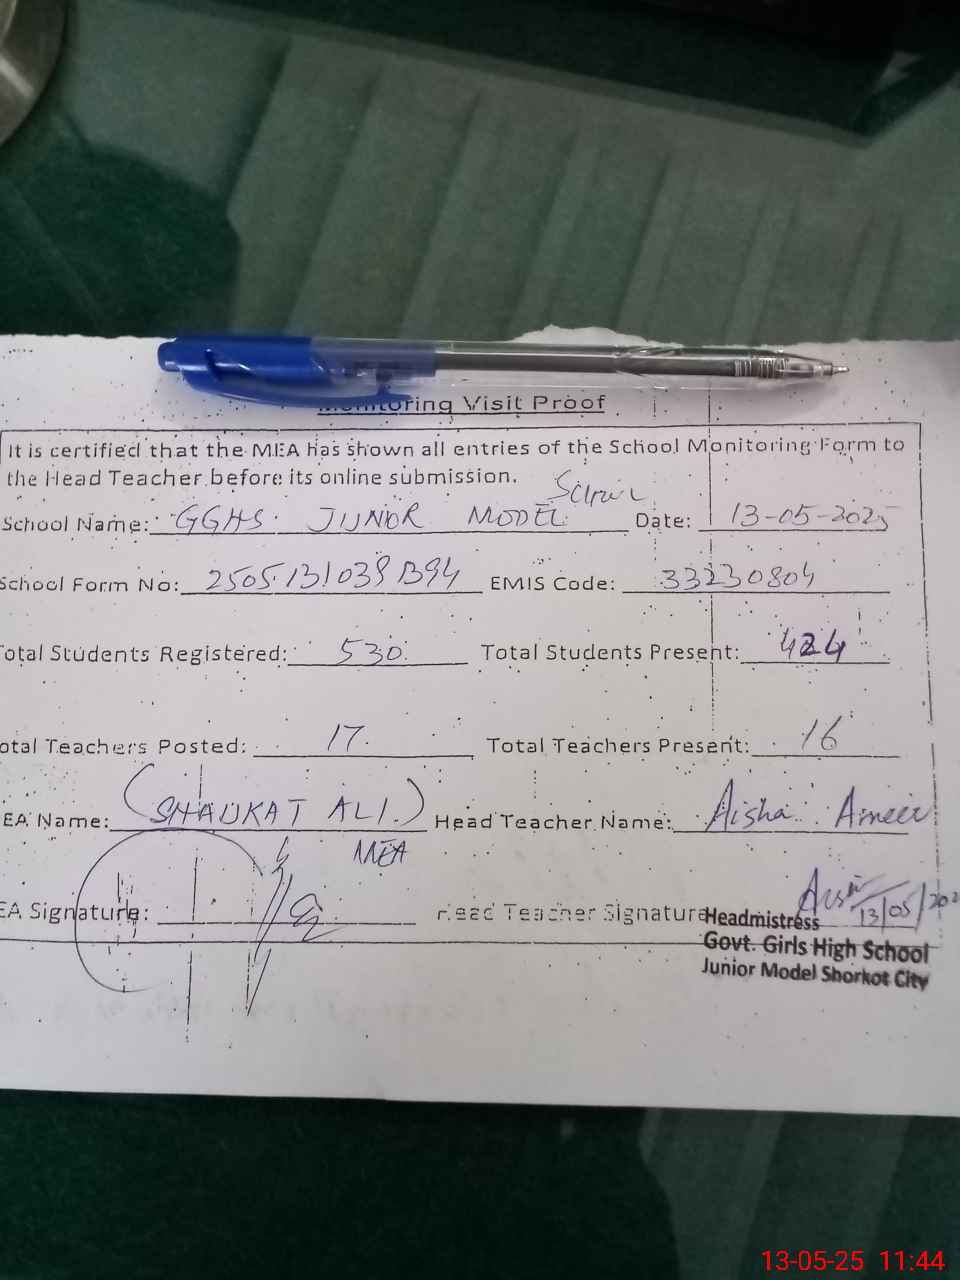 Monitoring Visit Proof
It is certified that the MEA has shown all entries of the School Monitoring Form to
the Head Teacher before its online submission.
School Name: GGHS JUNIOR MODEL Date: 13-05-2025
School Form No: 2505131039B94 EMIS Code: 33230804
Total Students Registered: 530 Total Students Present: 424
otal Teachers Posted: 17 Total Teachers Present: 16
EA Name: (SHAUKAT ALI) Head Teacher Name: Aisha Ameer
MEA
EA Signature: Head Teacher Signature
13/05/202
Headmistress
Govt. Girls High School
Junior Model Shorkot City
13-05-25 11:44